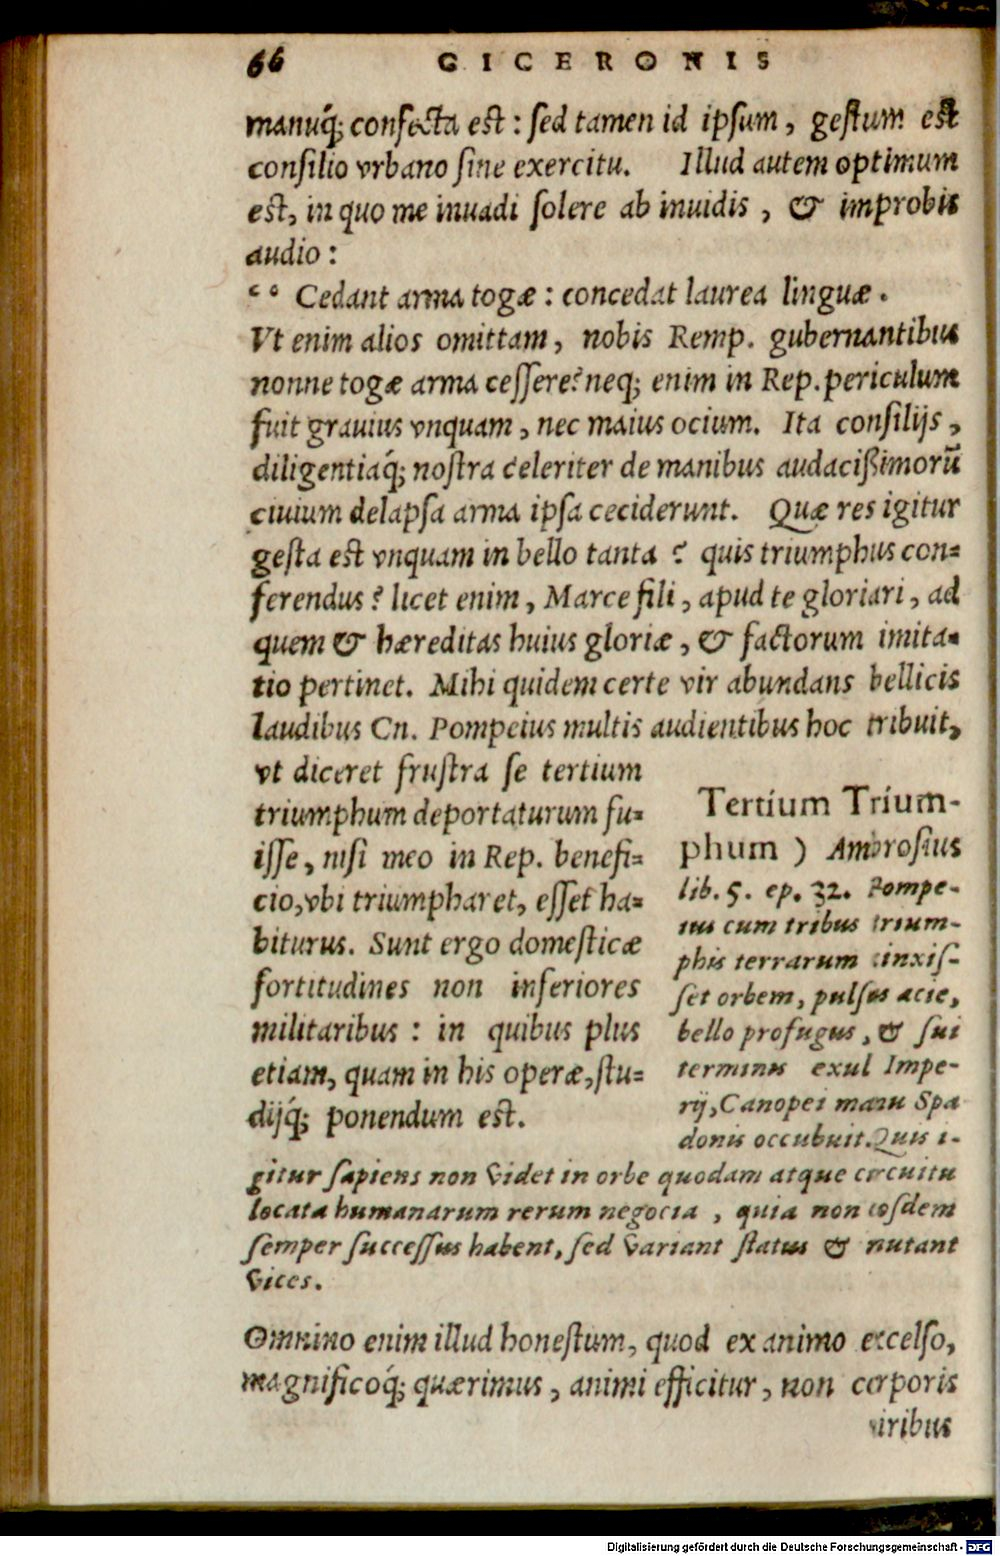 66 GICERONIS
manuq́; confecta est : sed tamen id ipsum, gestum est
consilio vrbano sine exercitu. Illud autem optimum
est, in quo me inuadi solere ab inuidis, & improbis
audio :
“ Cedant arma togæ : concedat laurea linguæ.
Vt enim alios omittam, nobis Remp. gubernantibus
nonne togæ arma cessere? neq; enim in Rep. periculum
fuit grauius vnquam, nec maius ocium. Ita consilijs,
diligentiaq́; nostra celeriter de manibus audacißimorũ
ciuium delapsa arma ipsa ceciderunt. Quæ res igitur
gesta est vnquam in bello tanta ? quis triumphus con=
ferendus? licet enim, Marce fili, apud te gloriari, ad
quem & hæreditas huius gloriæ, & factorum imita=
tio pertinet. Mihi quidem certe vir abundans bellicis
laudibus Cn. Pompeius multis audientibus hoc tribuit,
vt diceret frustra se tertium
triumphum deportaturum fu=
isse, nisi meo in Rep. benefi=
cio, vbi triumpharet, esset ha=
biturus. Sunt ergo domesticæ
fortitudines non inferiores
militaribus : in quibus plus
etiam, quam in his operæ, stu=
dijq́; ponendum est.
Tertium Trium-
phum ) Ambrosius
lib. 5. ep. 32. Pompe-
ius cum tribus trium-
phis terrarum cinxis-
set orbem, pulsus acie,
bello profugus, & sui
terminis exul Impe-
rij, Canopei manu Spa
donis occubuit. Quis i-
gitur sapiens non videt in orbe quodam atque circuitu
locata humanarum rerum negocia, quia non eosdem
semper successus habent, sed variant status & nutant
vices.
Omnino enim illud honestum, quod ex animo excelso,
magnificoq́; quærimus, animi efficitur, non corporis
viribus
Digitalisierung gefördert durch die Deutsche Forschungsgemeinschaft - DFG